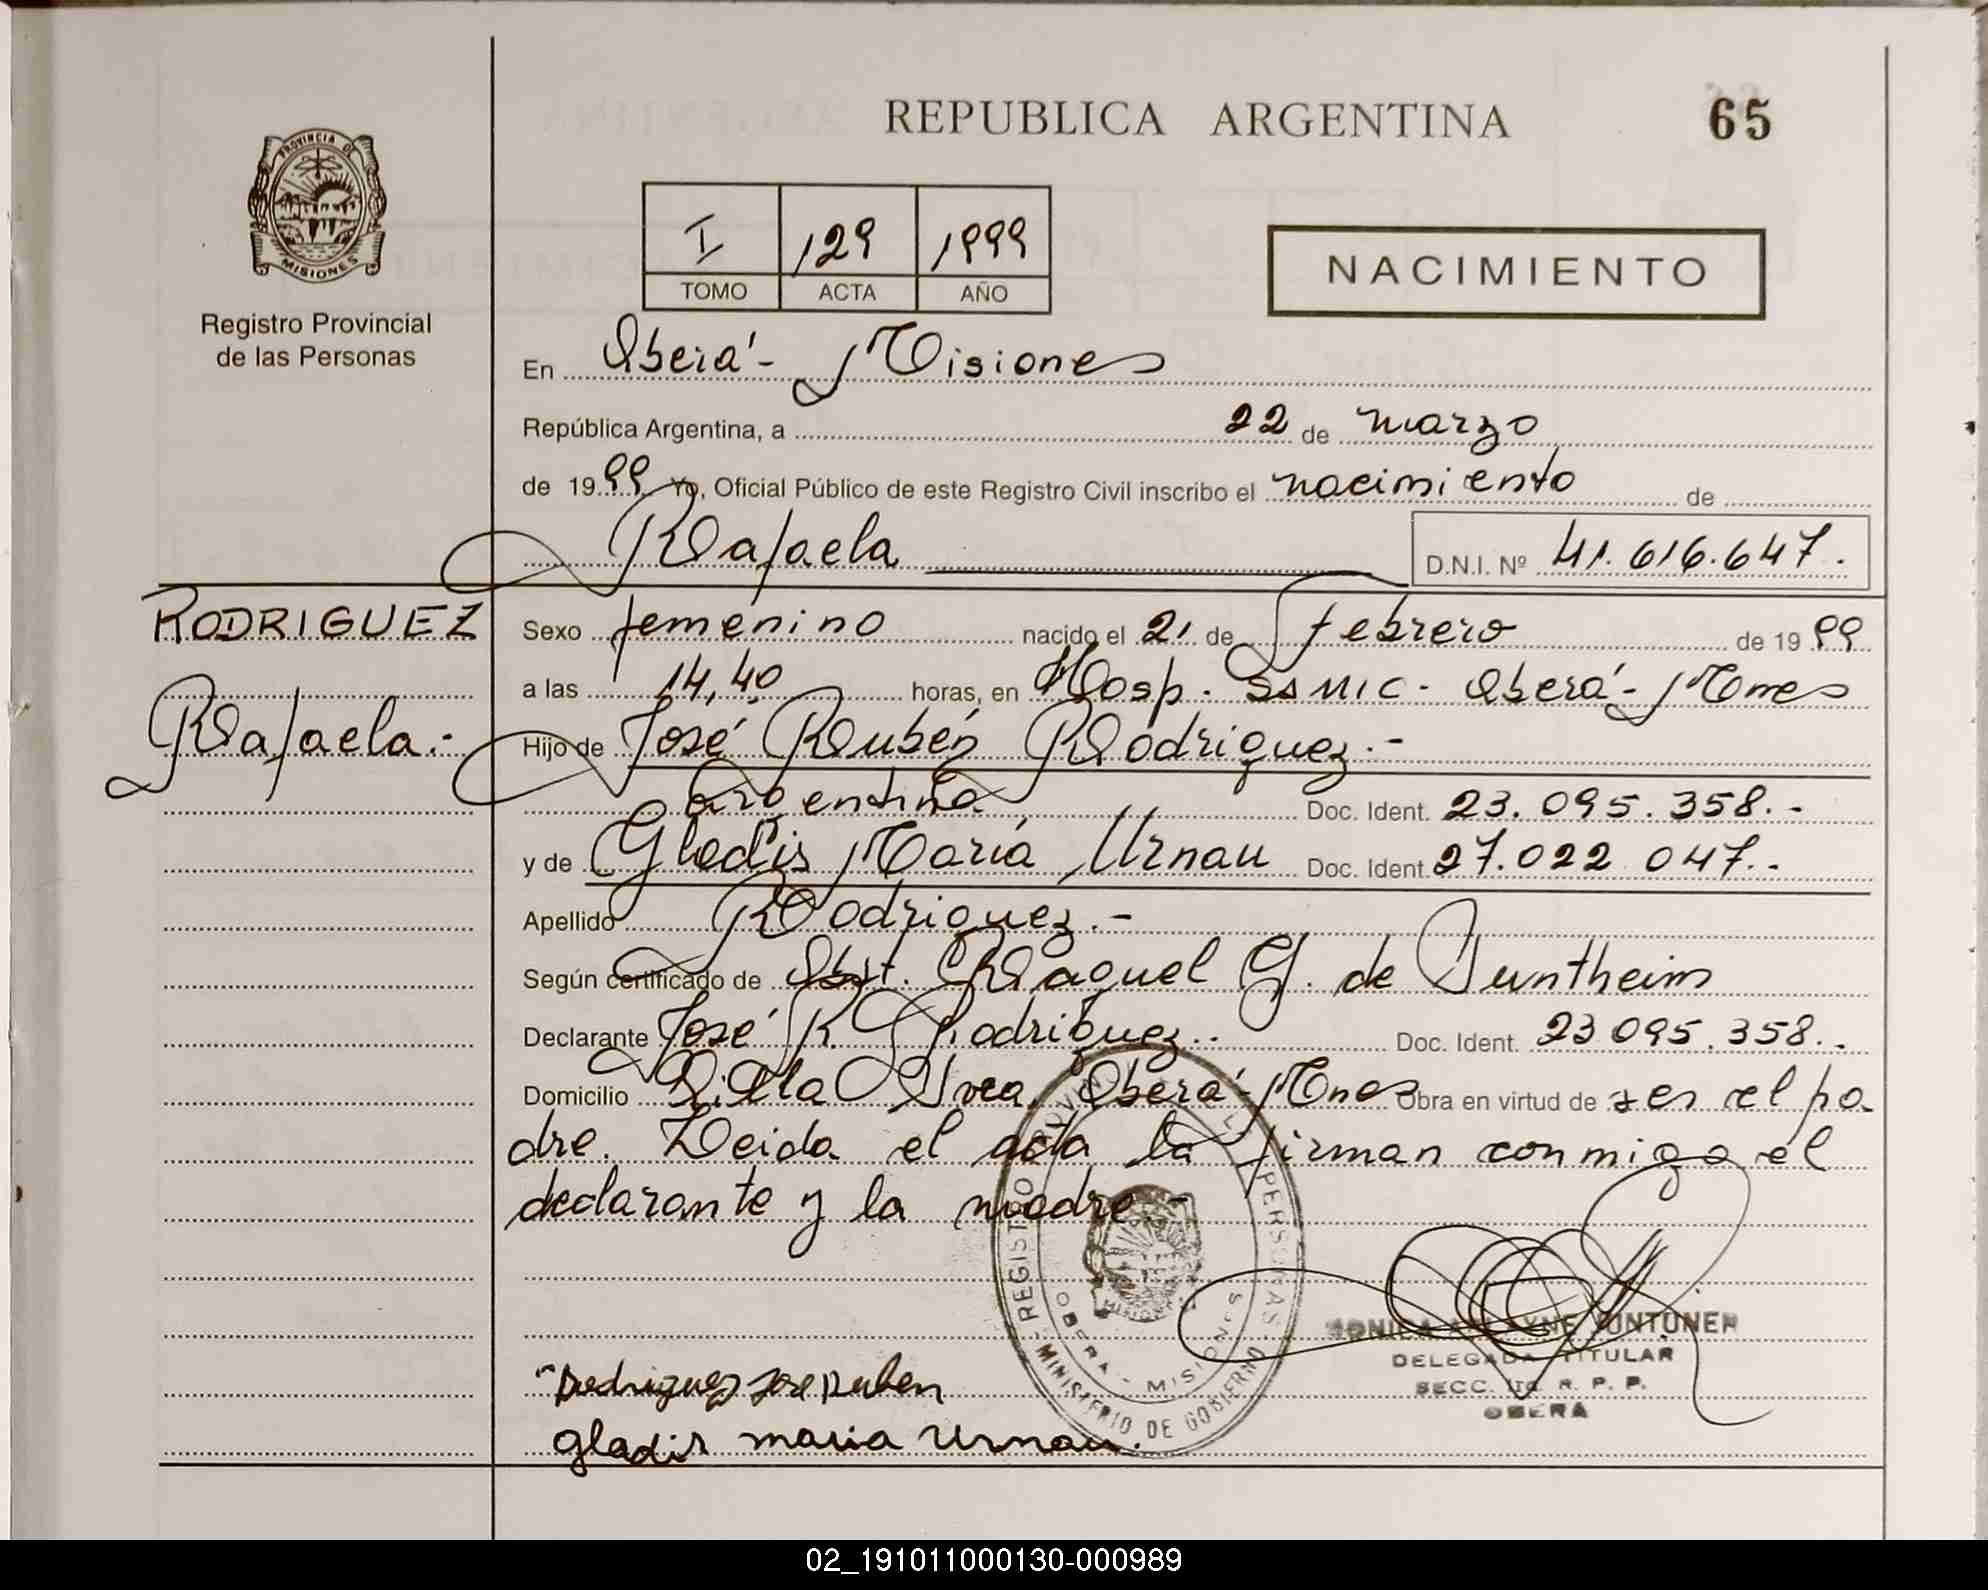 REPUBLICA ARGENTINA
65
PROVINCIA DE
MISIONES
Registro Provincial
de las Personas
I 129 1999
TOMO ACTA AÑO
NACIMIENTO
En Oberá - Misiones
República Argentina, a 22 de marzo
de 1999 Yo, Oficial Público de este Registro Civil inscribo el nacimiento de
Rafaela D.N.I. Nº 41.616.647.
RODRIGUEZ
Rafaela.-
Sexo femenino nacido el 21 de febrero de 1999
a las 14,40 horas, en Hosp. SSMIC - Oberá - Mnes
Hijo de José Rubén Rodriguez.-
argentina Doc. Ident. 23.095.358.-
y de Gladis María Urnau Doc. Ident 27.022 047.-
Apellido Rodriguez.-
Según certificado de Obst. Raquel G. de
Declarante José R. Rodriguez.. Doc. Ident. 23 095.358..
Domicilio Villa Oberá - Mnes Obra en virtud de ser el pa-
dre. Leida el acta la firman conmigo el
declarante y la madre -
REGISTRO PROVINCIAL DE LAS PERSONAS
MINISTERIO DE GOBIERNO
OBERA - MISIONES
MISIONES
DELEGADA TITULAR
SECC. R. P. P.
OBERA
Rodriguez Jose Ruben
gladis maria Urnau.
02_191011000130-000989